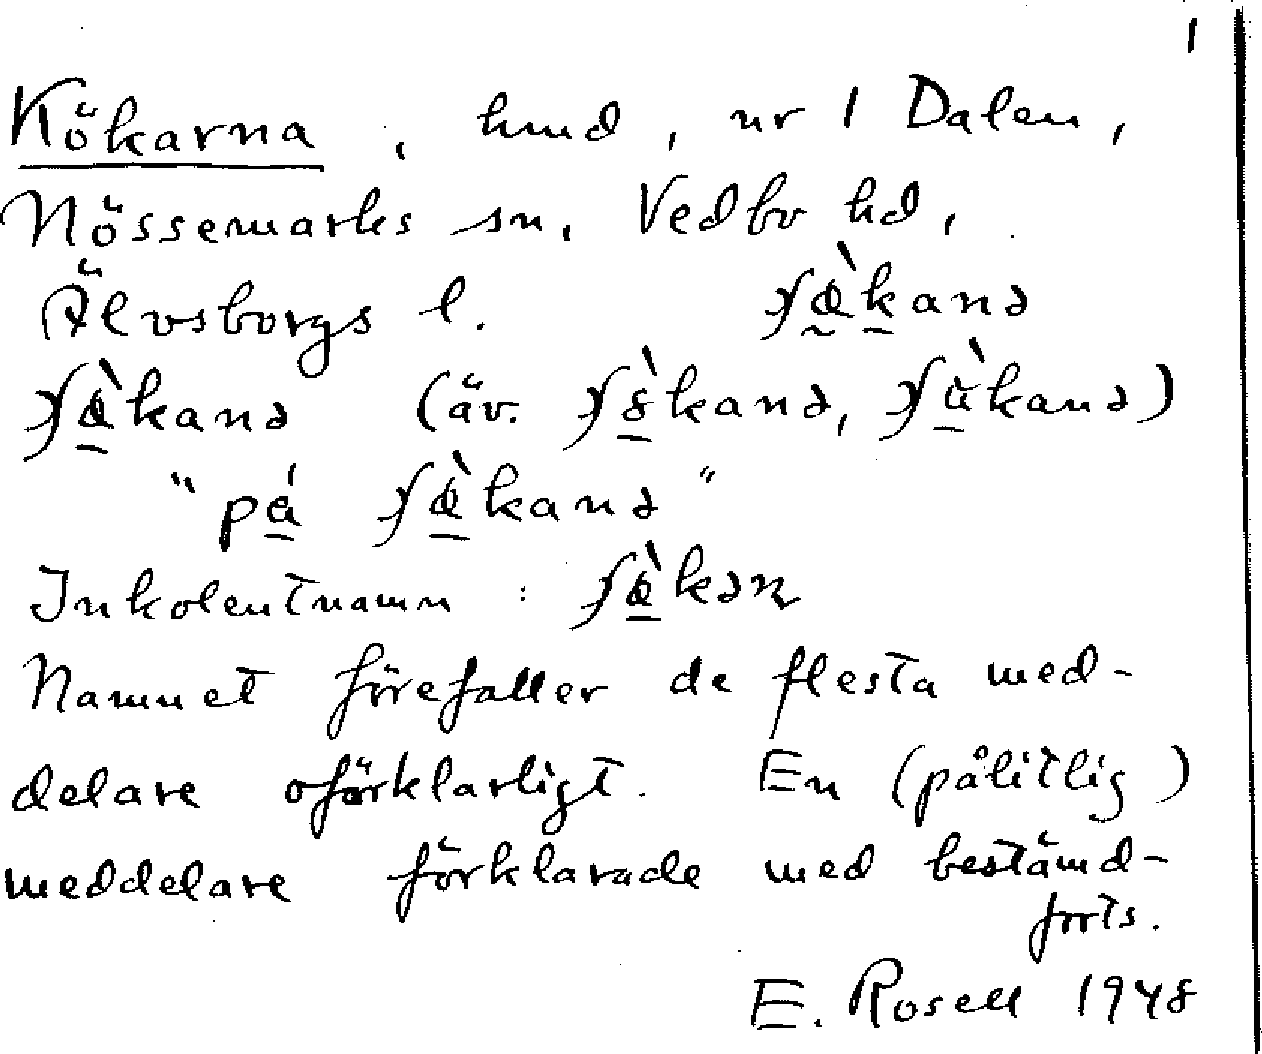 1
Kökarna, hmd, nr 1 Dalen,
Nössemarks sn, Vedbo hd,
Älvsborgs l.
(äv.
"på
Inkolentnamn :
Namnet förefaller de flesta med-
delare oförklarligt. En (pålitlig)
meddelare förklarade med bestämd-
forts.
E. Rosell 1948